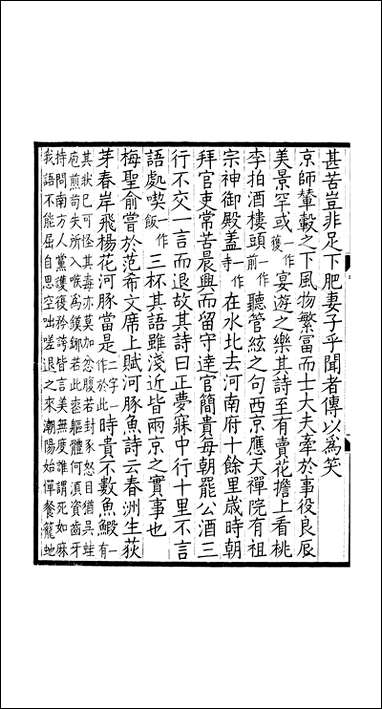 甚苦豈非足下肥妻子乎聞者傳以為笑
京師輦轂之下風物繁富而士大夫牽於事役良辰
美景罕或一作獲宴遊之樂其詩至有賣花擔上看桃
李拍酒樓頭一作前聽管絃之句西京應天禪院有祖
宗神御殿蓋一作寺在水北去河南府十餘里歲時朝
拜官吏常苦晨興而留守達官簡貴每朝罷公酒三
行不交一言而退故其詩曰正夢寐中行十里不言
語處喫一作飯三杯其語雖淺近皆兩京之實事也
梅聖俞嘗於范希文席上賦河豚魚詩云春洲生荻
芽春岸飛楊花河豚當是二字一作於此時貴不數魚鰕一有
其狀已可怪其毒亦莫加忿腹若封豕怒目猶吳蛙
庖煎苟失所入喉為鏌鋣若此喪軀體何須資齒牙
持問南方人黨護復矜誇皆言美無度誰謂死如麻
我語不能屈自思空咄嗟退之來潮陽始憚餐籠虵